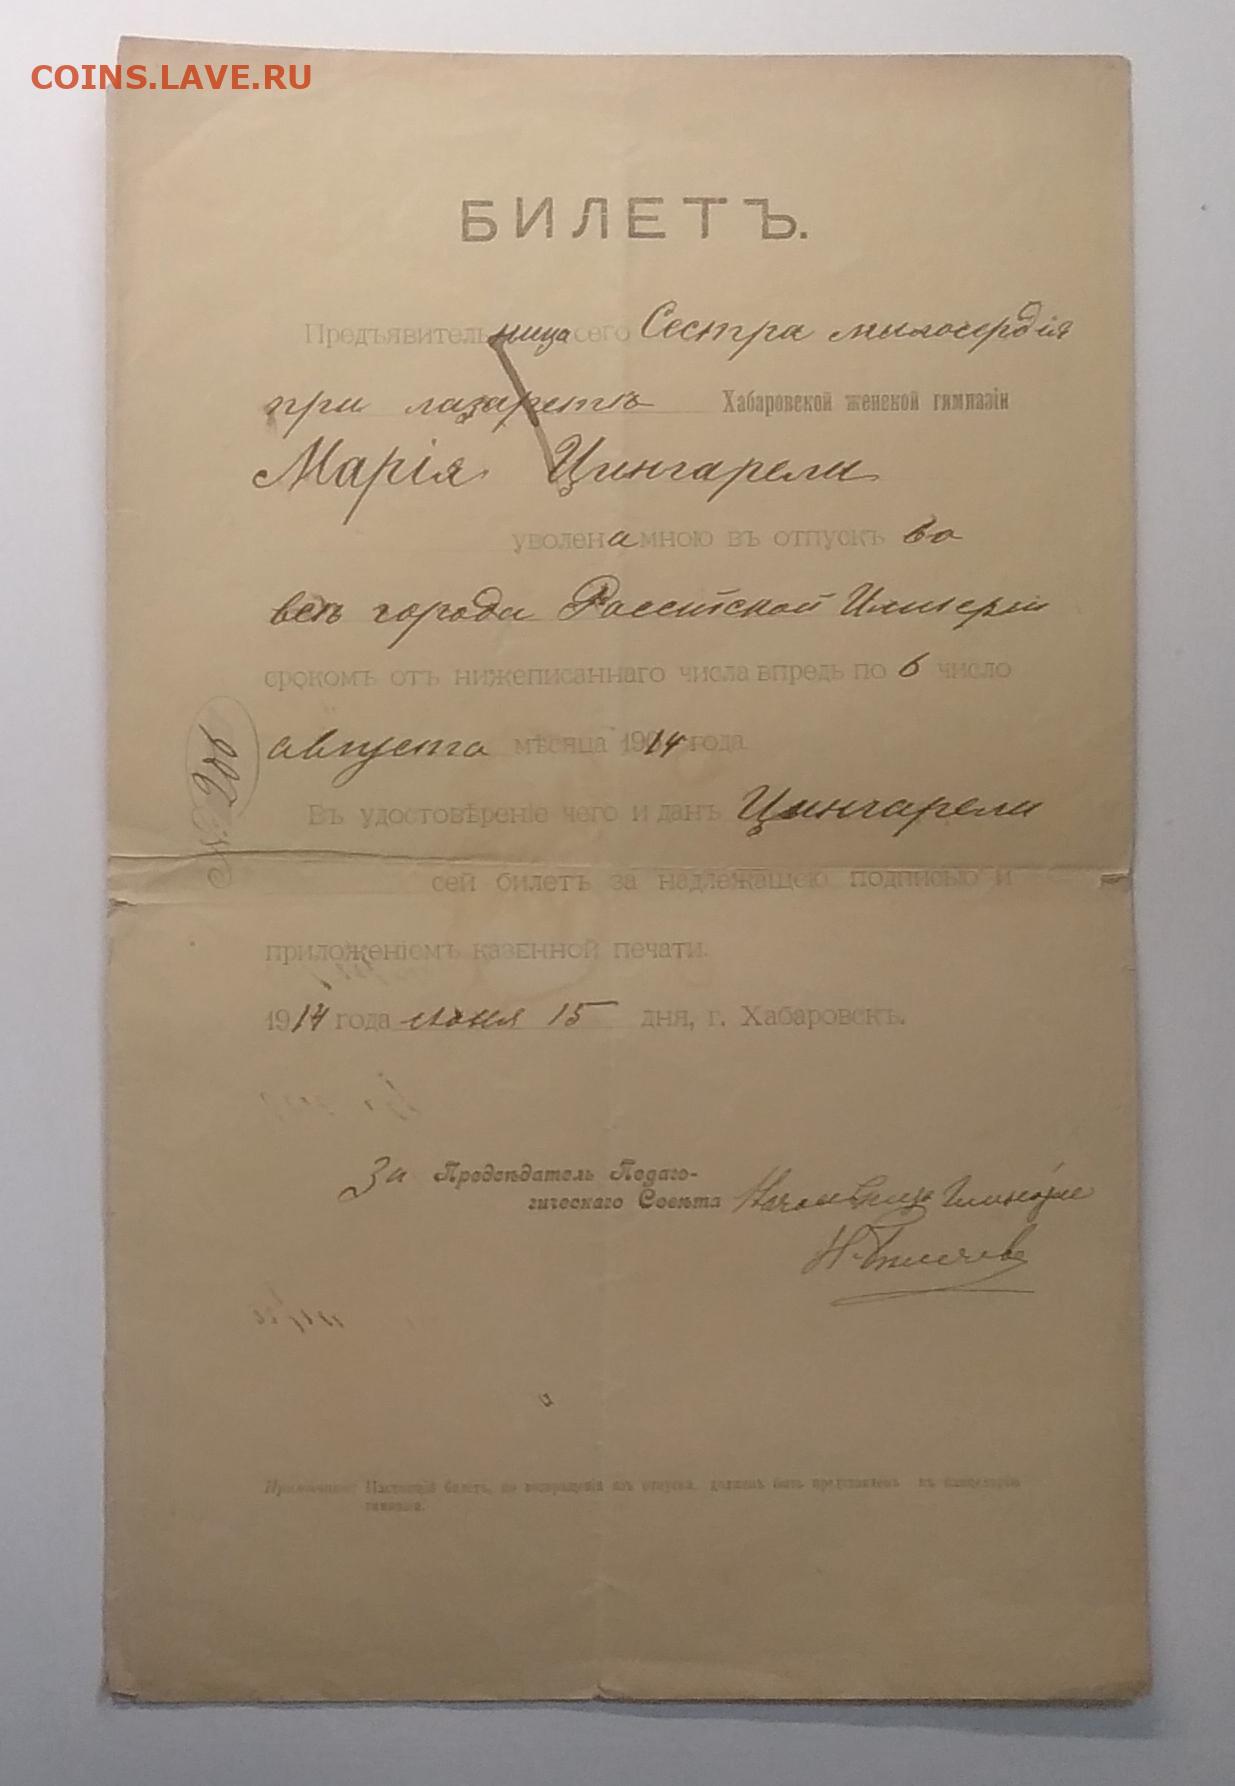 COINS.LAVE.RU
БИЛЕТЪ.
Предъявительница сего Сестра милосердія
при лазаретѣ Хабаровской женской гимназіи
Марія Цингарели
уволена мною въ отпускъ во
всѣ города Россійской Имперіи
срокомъ отъ нижеписаннаго числа впредь по 6 число
августа мѣсяца 1914 года
Въ удостовѣреніе чего и данъ Цингарели
сей билетъ за надлежащею подписью и
приложеніемъ казенной печати.
1914 года июня 15 дня, г. Хабаровскъ.
За Предсѣдатель Педаго-
гическаго Совѣта Начальница Гимназіи
Примѣчаніе: Настоящій билетъ, по возвращеніи изъ отпуска, долженъ быть представленъ въ канцелярію
гимназіи.
№ 206